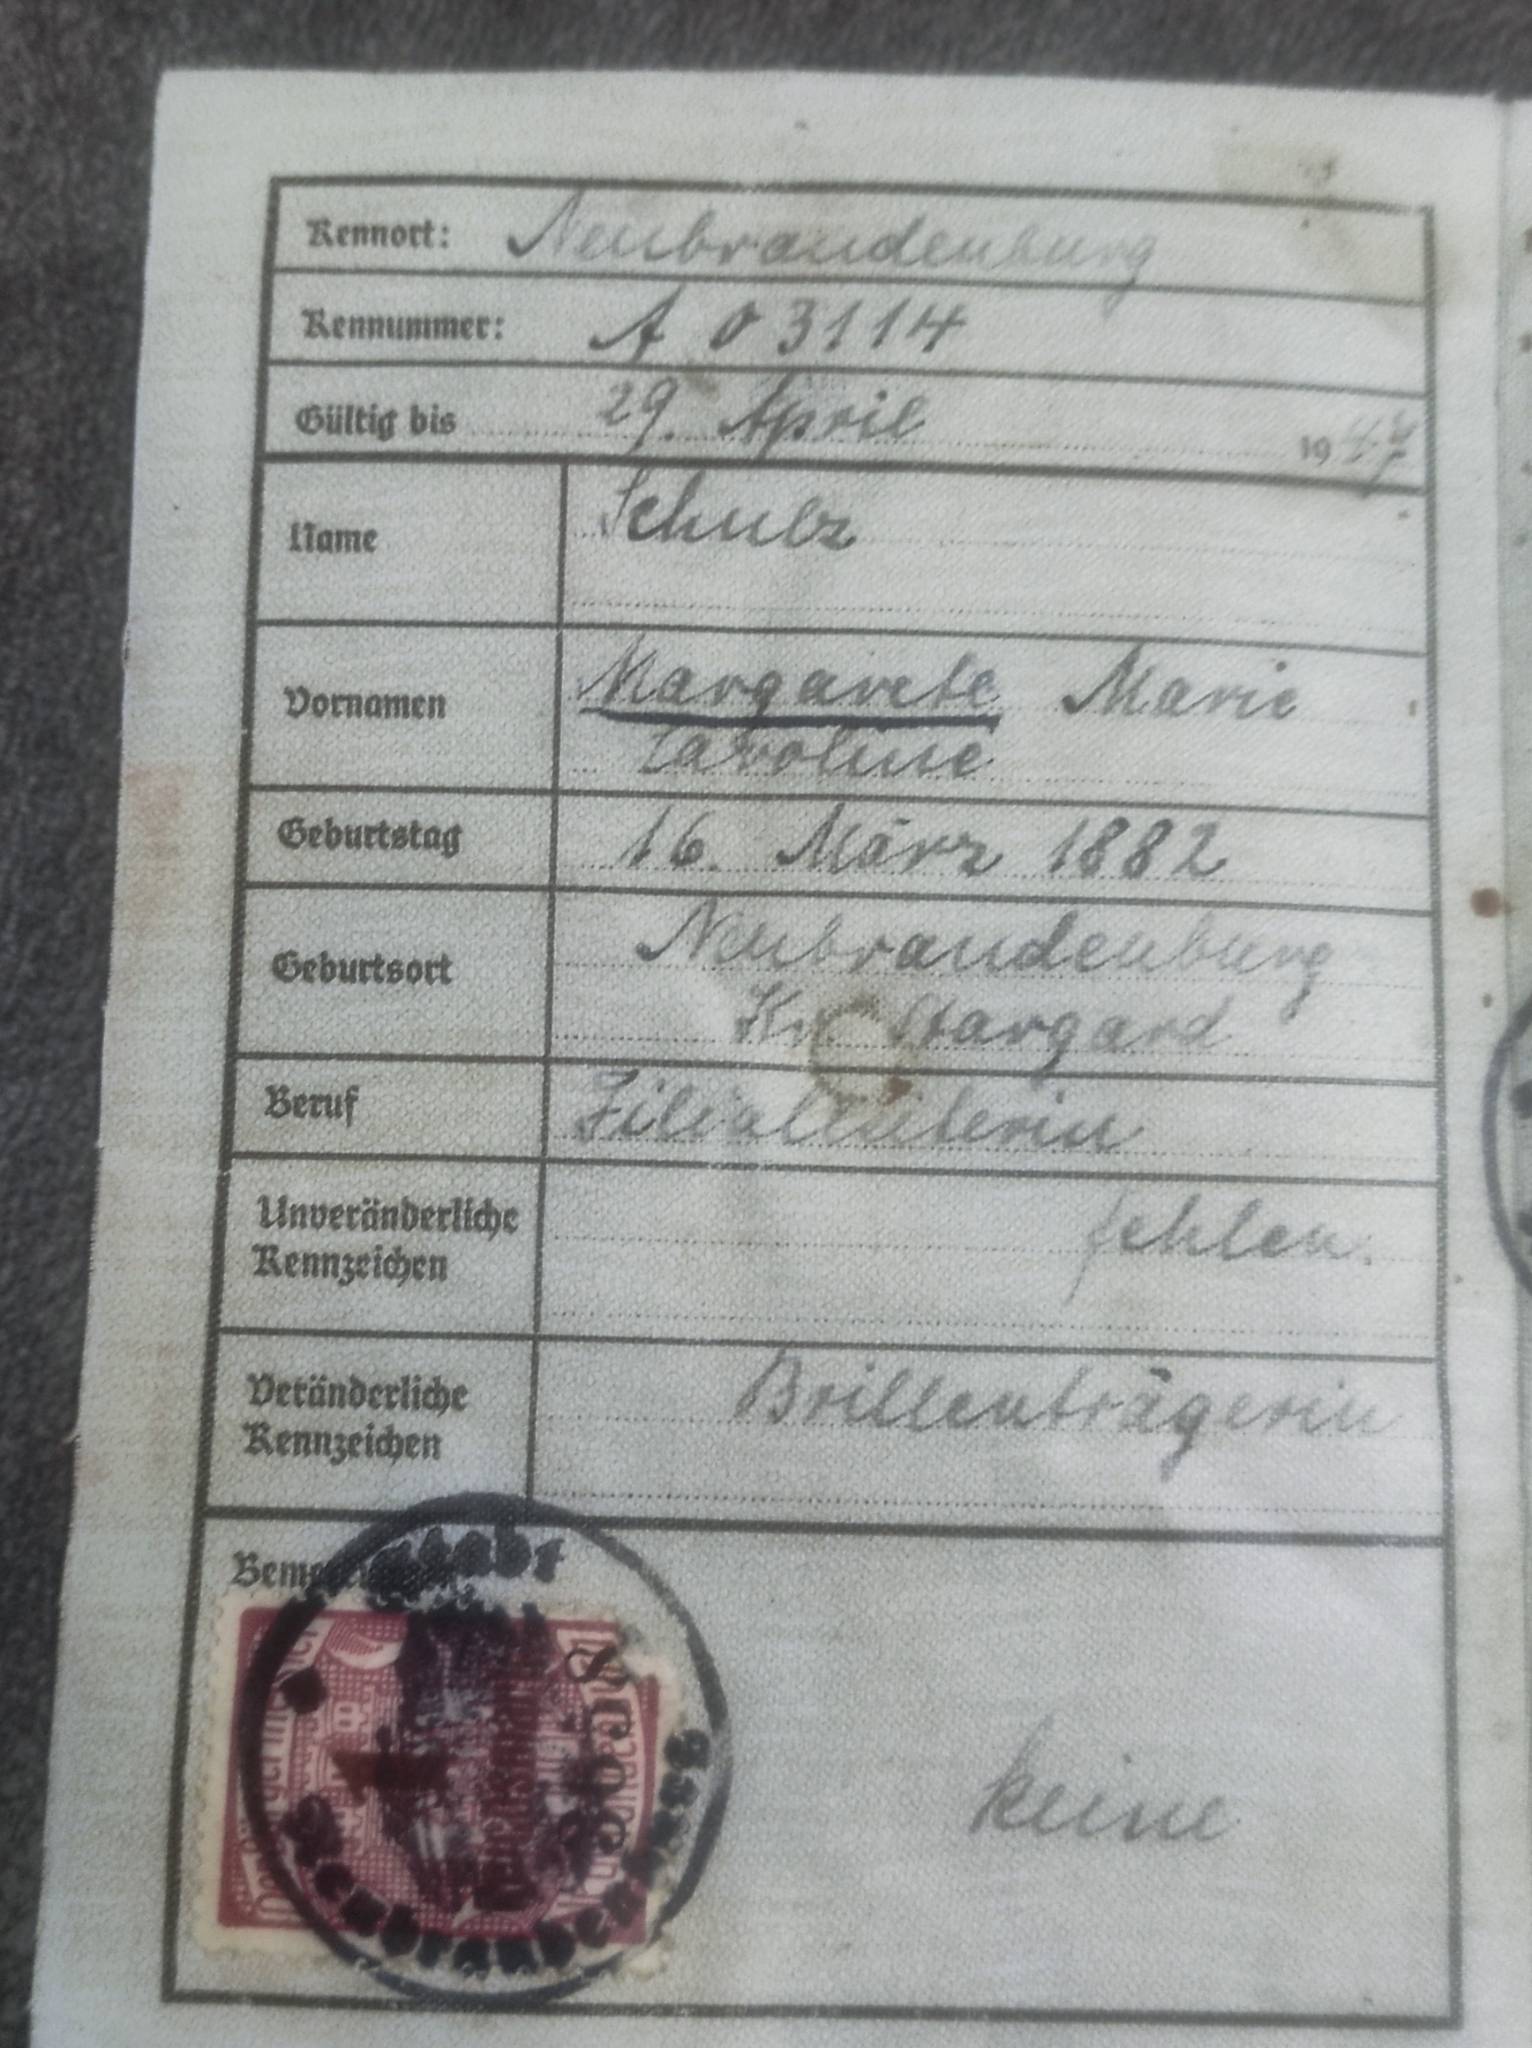 Kennort: Neubrandenburg
Kennummer: A 03114
Gültig bis 29. April 1947
Name Schulz
Vornamen Margarete Marie
Caroline
Geburtstag 16. März 1882
Geburtsort Neubrandenburg
Kr. Stargard
Beruf Filialleiterin
Unveränderliche
Kennzeichen
fehlen.
Veränderliche
Kennzeichen
Brillenträgerin
keine
Neubrandenburg